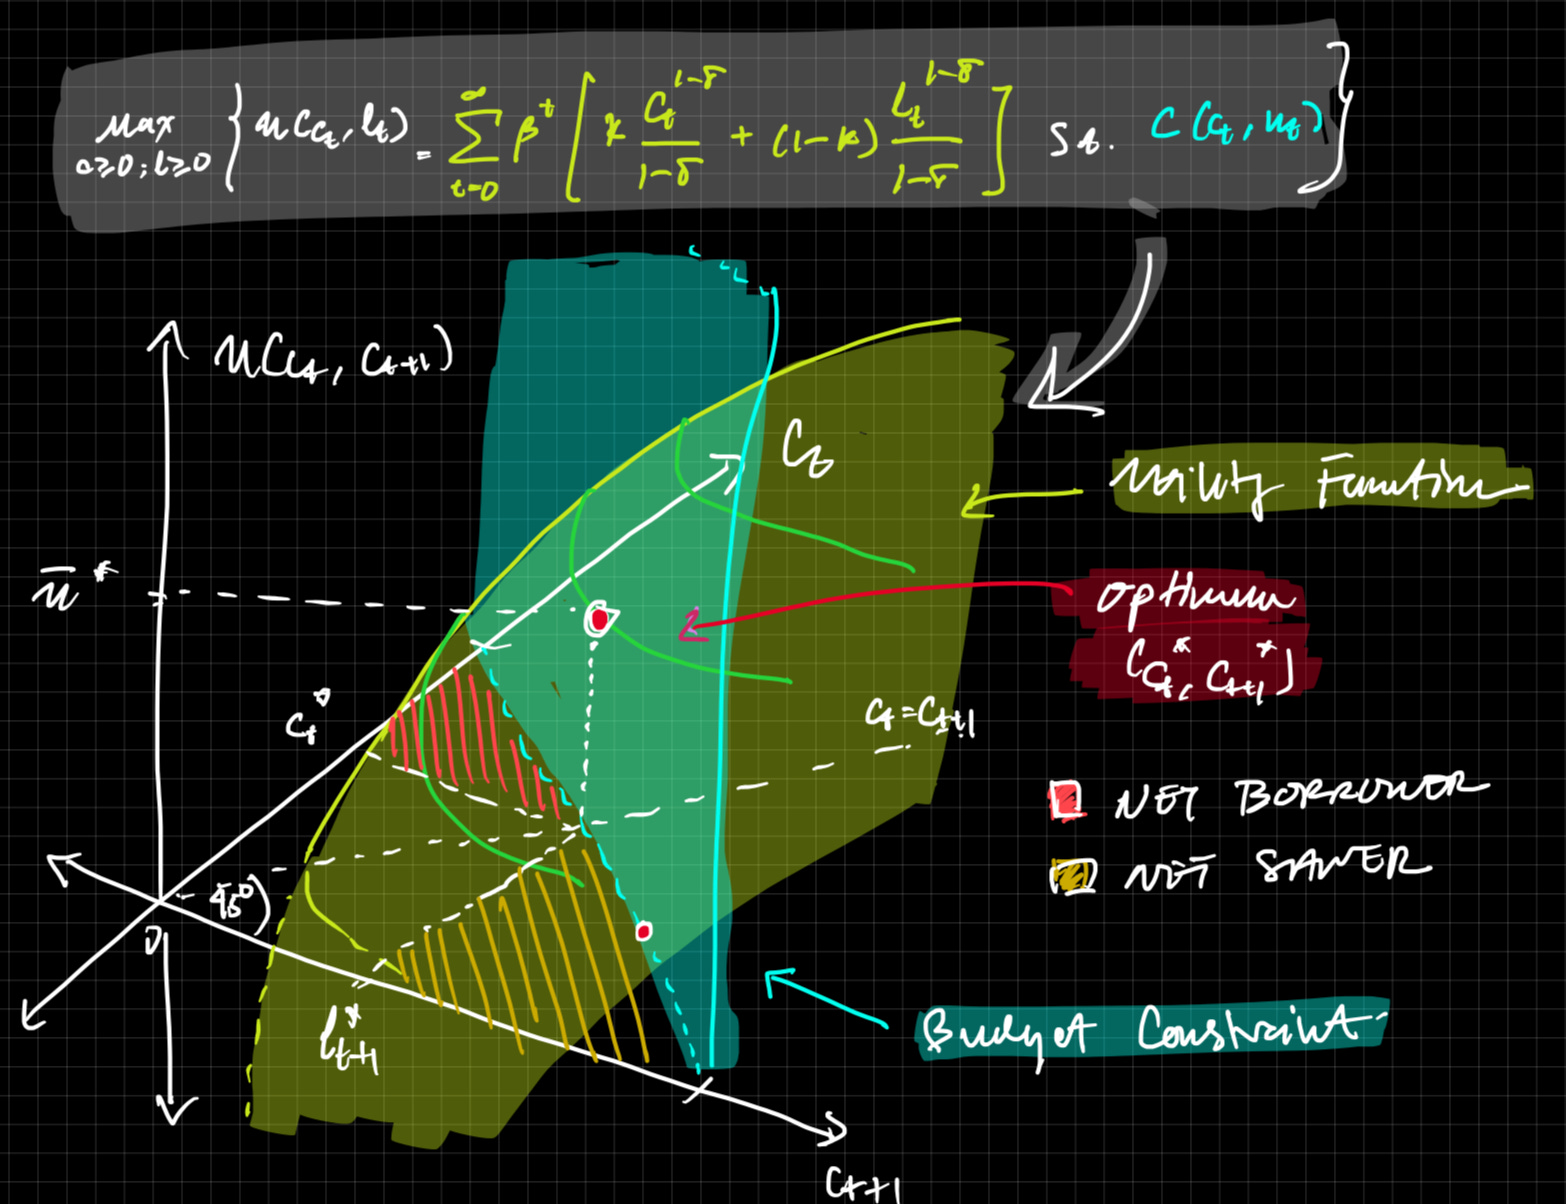 Max { u(c_t, l_t) = ∑ β^t [ κ C_t^{1-δ} / 1-δ + (1-κ) L_t^{1-δ} / 1-δ ] s.t. C(c_t, n_t) }
c≥0 ; l≥0
t=0
∞
u(c_t, c_{t+1})
C_t
Utility Function
ū*
optimum
(c_t*, c_{t+1}*)
c_t*
c_t = c_{t+1}
NET BORROWER
NET SAVER
45°
0
l*_{t+1}
Budget Constraint
C_{t+1}